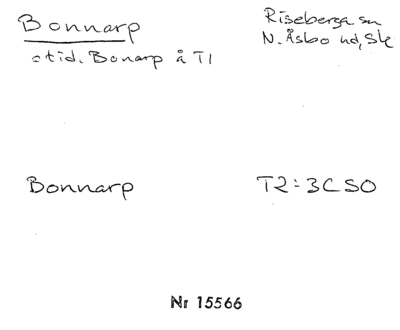 Bonnarp
Riseberga sn
= tid. Bonarp å T1
N. Åsbo hd, Sk
Bonnarp
T2 = 3C SO
Nr 15566